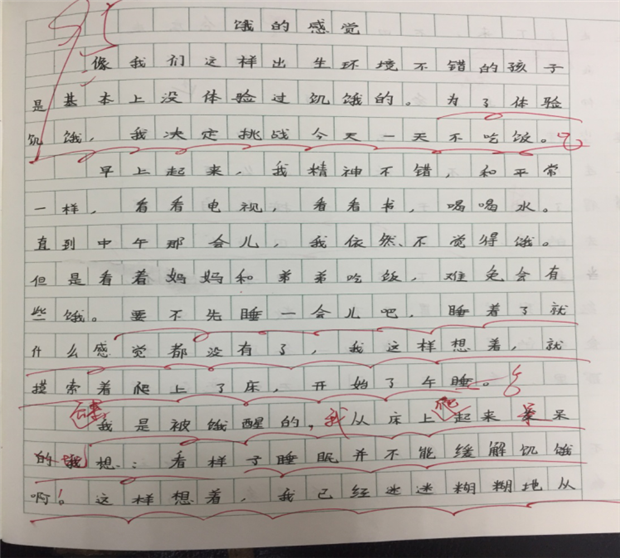 饿的感觉
像我们这样出生环境不错的孩子
是基本上没体验过饥饿的。为了体验
饥饿，我决定挑战今天一天不吃饭。
早上起来，我精神不错，和平常
一样，看看电视，看看书，喝喝水。
直到中午那会儿，我依然不觉得饿。
但是看着妈妈和弟弟吃饭，难免会有
些饿。要不先睡一会儿吧，睡着了就
什么感觉都没有了，我这样想着，就
摸索着爬上了床，开始了午睡。
我是被饿醒的，我从床上爬起来呆呆
的想：看样子睡眠并不能缓解饥饿
啊！这样想着，我已经迷迷糊糊地从